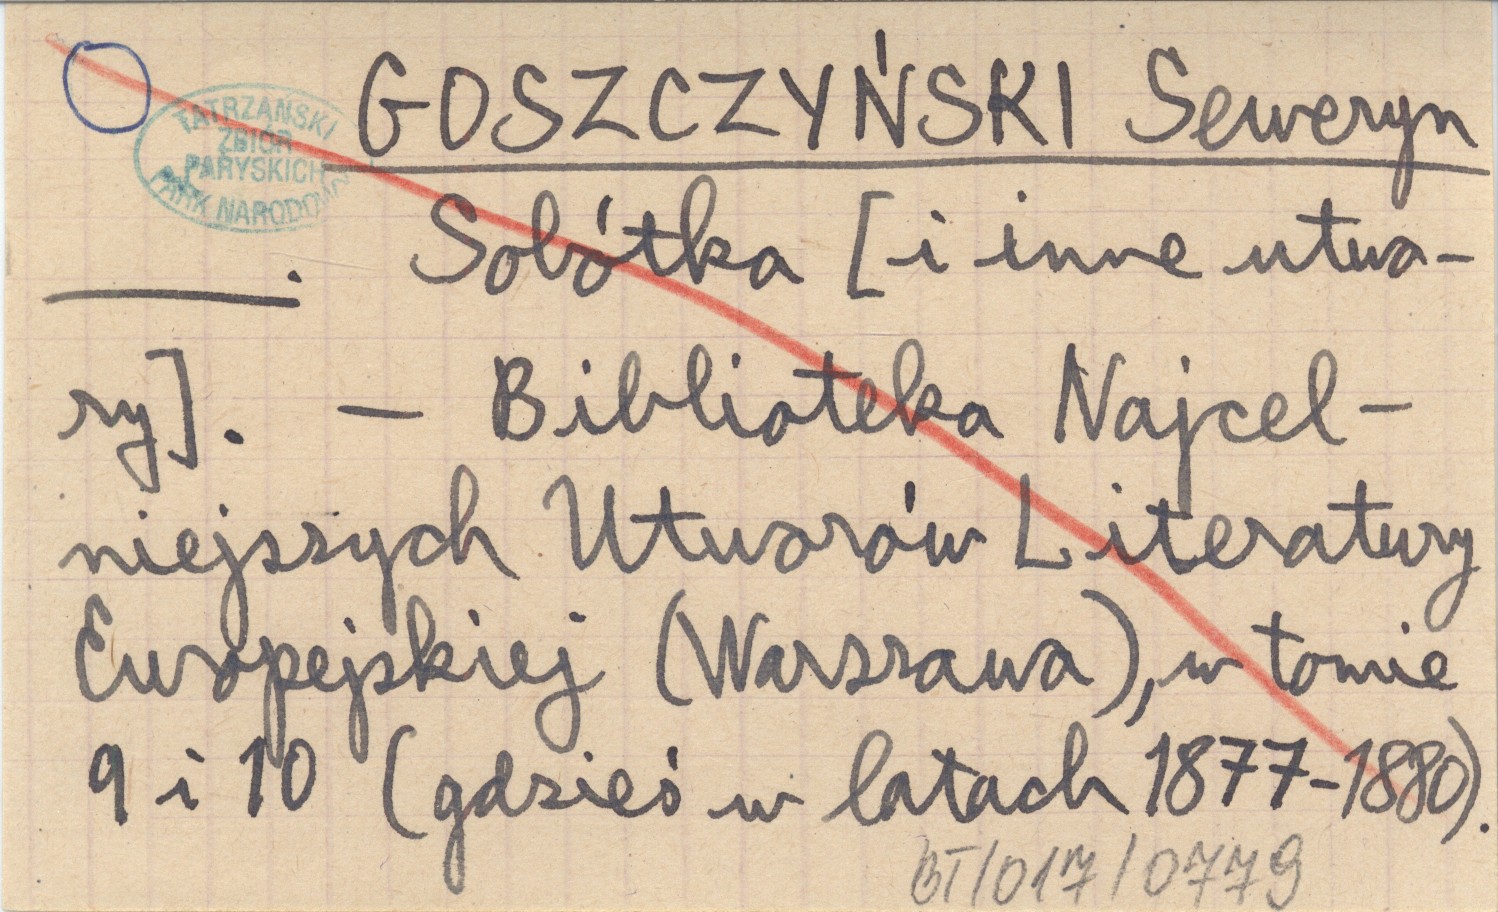 GOSZCZYŃSKI Seweryn
TATRZAŃSKI
ZBIÓR
PARYSKICH
PARK NARODOWY
. Sobótka [i inne utwo-
ry]. — Biblioteka Najcel-
niejszych Utworów Literatury
Europejskiej (Warszawa), w tomie
9 i 10 (gdzieś w latach 1877-1880).
BT/017/0779